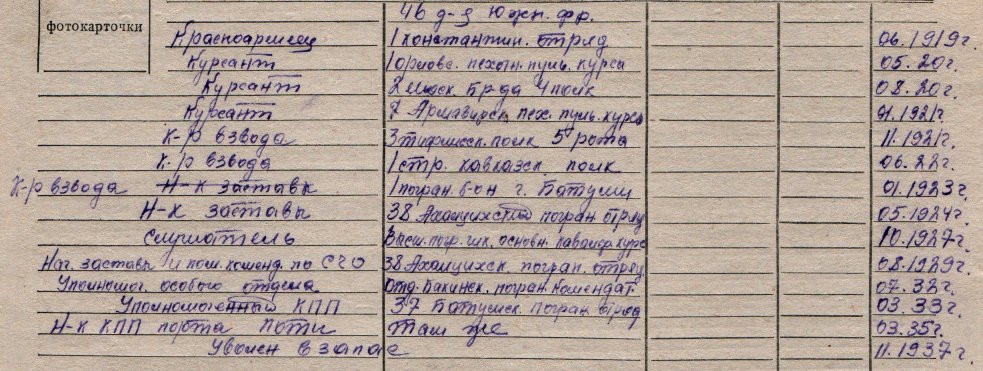 46 д-я Южн. фр.
фотокарточки
Красноармеец 1 константин. отряд 06.1919г.
Курсант 1 орловс. пехотн. пуль. курсы 05.20г.
Курсант 2 Моск бр-да 4 полк 08.20г.
Курсант 7 Армавирск пех. пул. курсы 01.1921г.
К-р взвода 3 тифлисск. полк 5 рота 11.1921г.
К-р взвода 1 стр. кавказск. полк 06.22г.
К-р взвода Н-к заставы 1 погран. б-он г. Батуми 01.1923г.
Н-к заставы 38 Ахалцихский погран отряд 05.1924г.
Слушатель Высш. погр. шк. основн. команд. курс 10.1927г.
Нач. заставы и пом. коменд. по СЧО 38 Ахалцихск. погран. отряд 08.1929г.
Уполномоч. особого отдела Отд. Бакинск. погран. комендат. 07.32г.
Уполномоченный КПП 37 Батумск. погран отряд 03.33г.
Н-к КПП порта Поти там же 03.35г.
Уволен в запас 11.1937г.